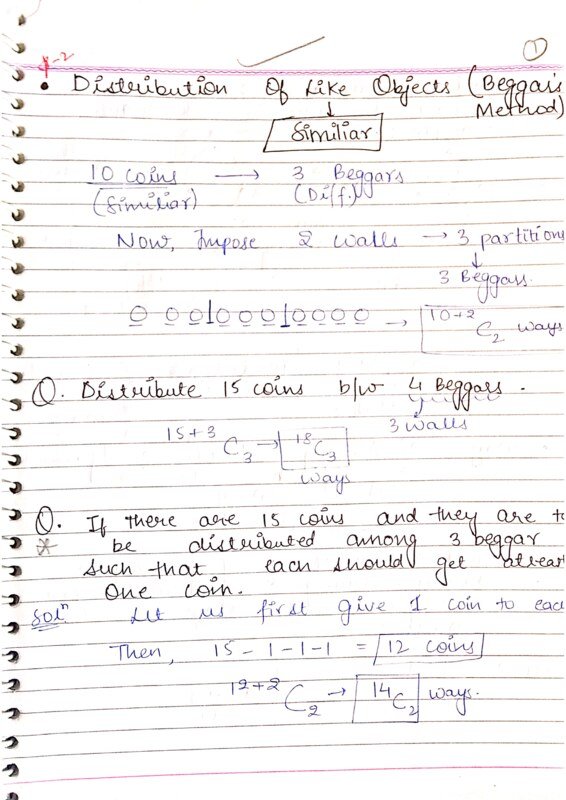 ①
• Distribution Of Like Objects (Beggar's Method)
↓
Similiar
10 Coins → 3 Beggars
(Similiar) (Diff.)
Now, Impose 2 walls → 3 partitions
↓
3 Beggars.
O O O|O O O O|O O O O → ¹⁰⁺²C₂ ways
Q. Distribute 15 coins b/w 4 Beggars.
3 walls
¹⁵⁺³C₃ → ¹⁸C₃
ways
Q. If there are 15 coins and they are to
* be distributed among 3 beggar
such that each should get atleast
One coin.
Solⁿ Let us first give 1 coin to each
Then, 15 - 1 - 1 - 1 = 12 coins
¹²⁺²C₂ → ¹⁴C₂ ways.